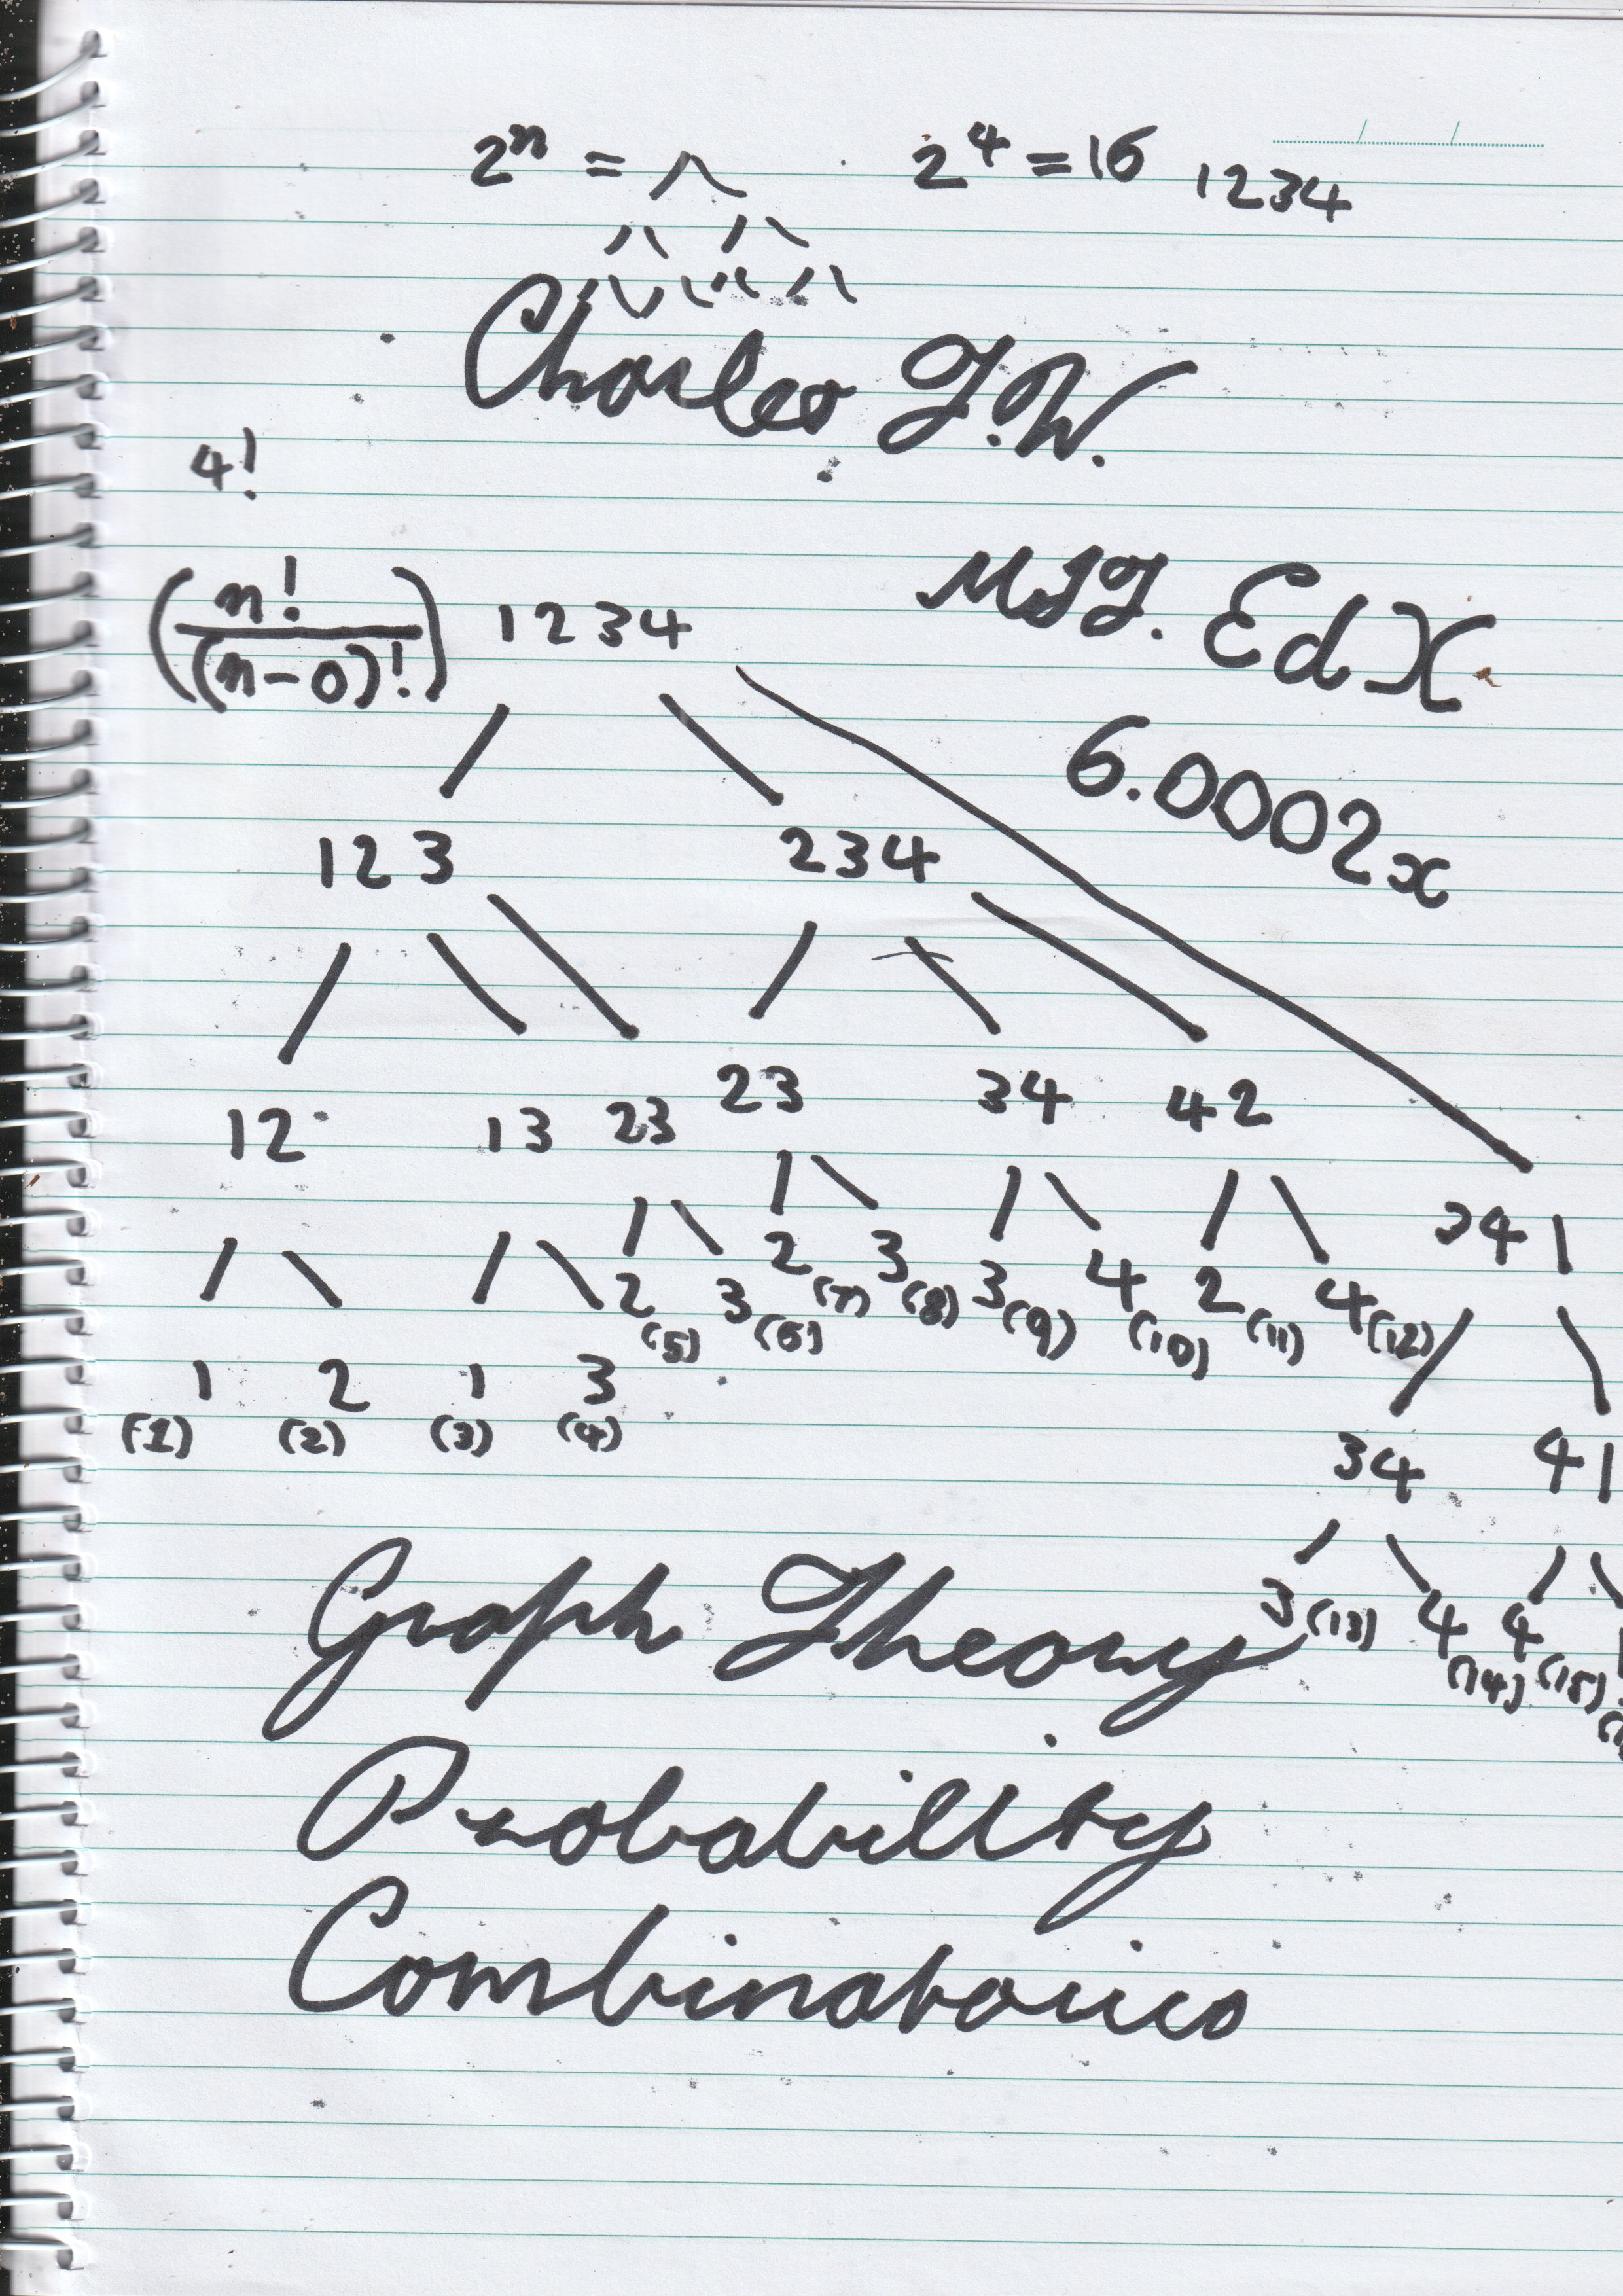 2ⁿ =
2⁴ = 16 1234
Charles J.W.
4!
(n!/(n-0)!) 1234
MIT. EdX
6.0002x
123 234
12 13 23 23 34 42
341
2 (5) 3 (6) 2 (7) 3 (8) 3 (9) 4 (10) 2 (11) 4 (12)
1 (1) 2 (2) 1 (3) 3 (4)
34 41
3 (13) 4 (14) 4 (15)
Graph Theory
Probability
Combinatorics